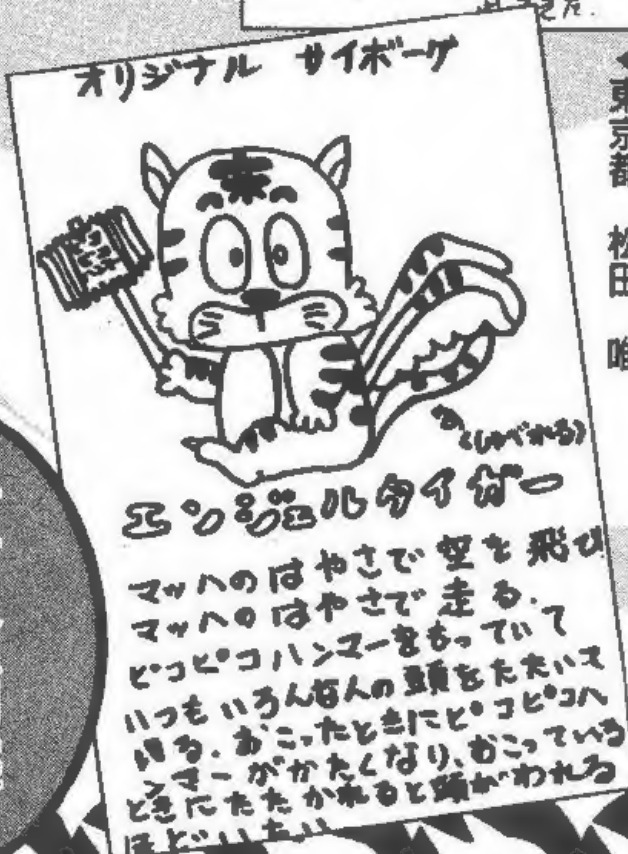 オリジナル サイボーグ
(しゃべれる)
エンジェルタイガー
マッハのはやさで空を飛び
マッハのはやさで走る.
ピコピコハンマーをもっていて
いつもいろんな人の頭をたたいて
いる. おこったときにピコピコハ
ンマーがかたくなり、おこっている
ときにたたかれると頭がわれる
ほどいたい
東京都 松田 唯